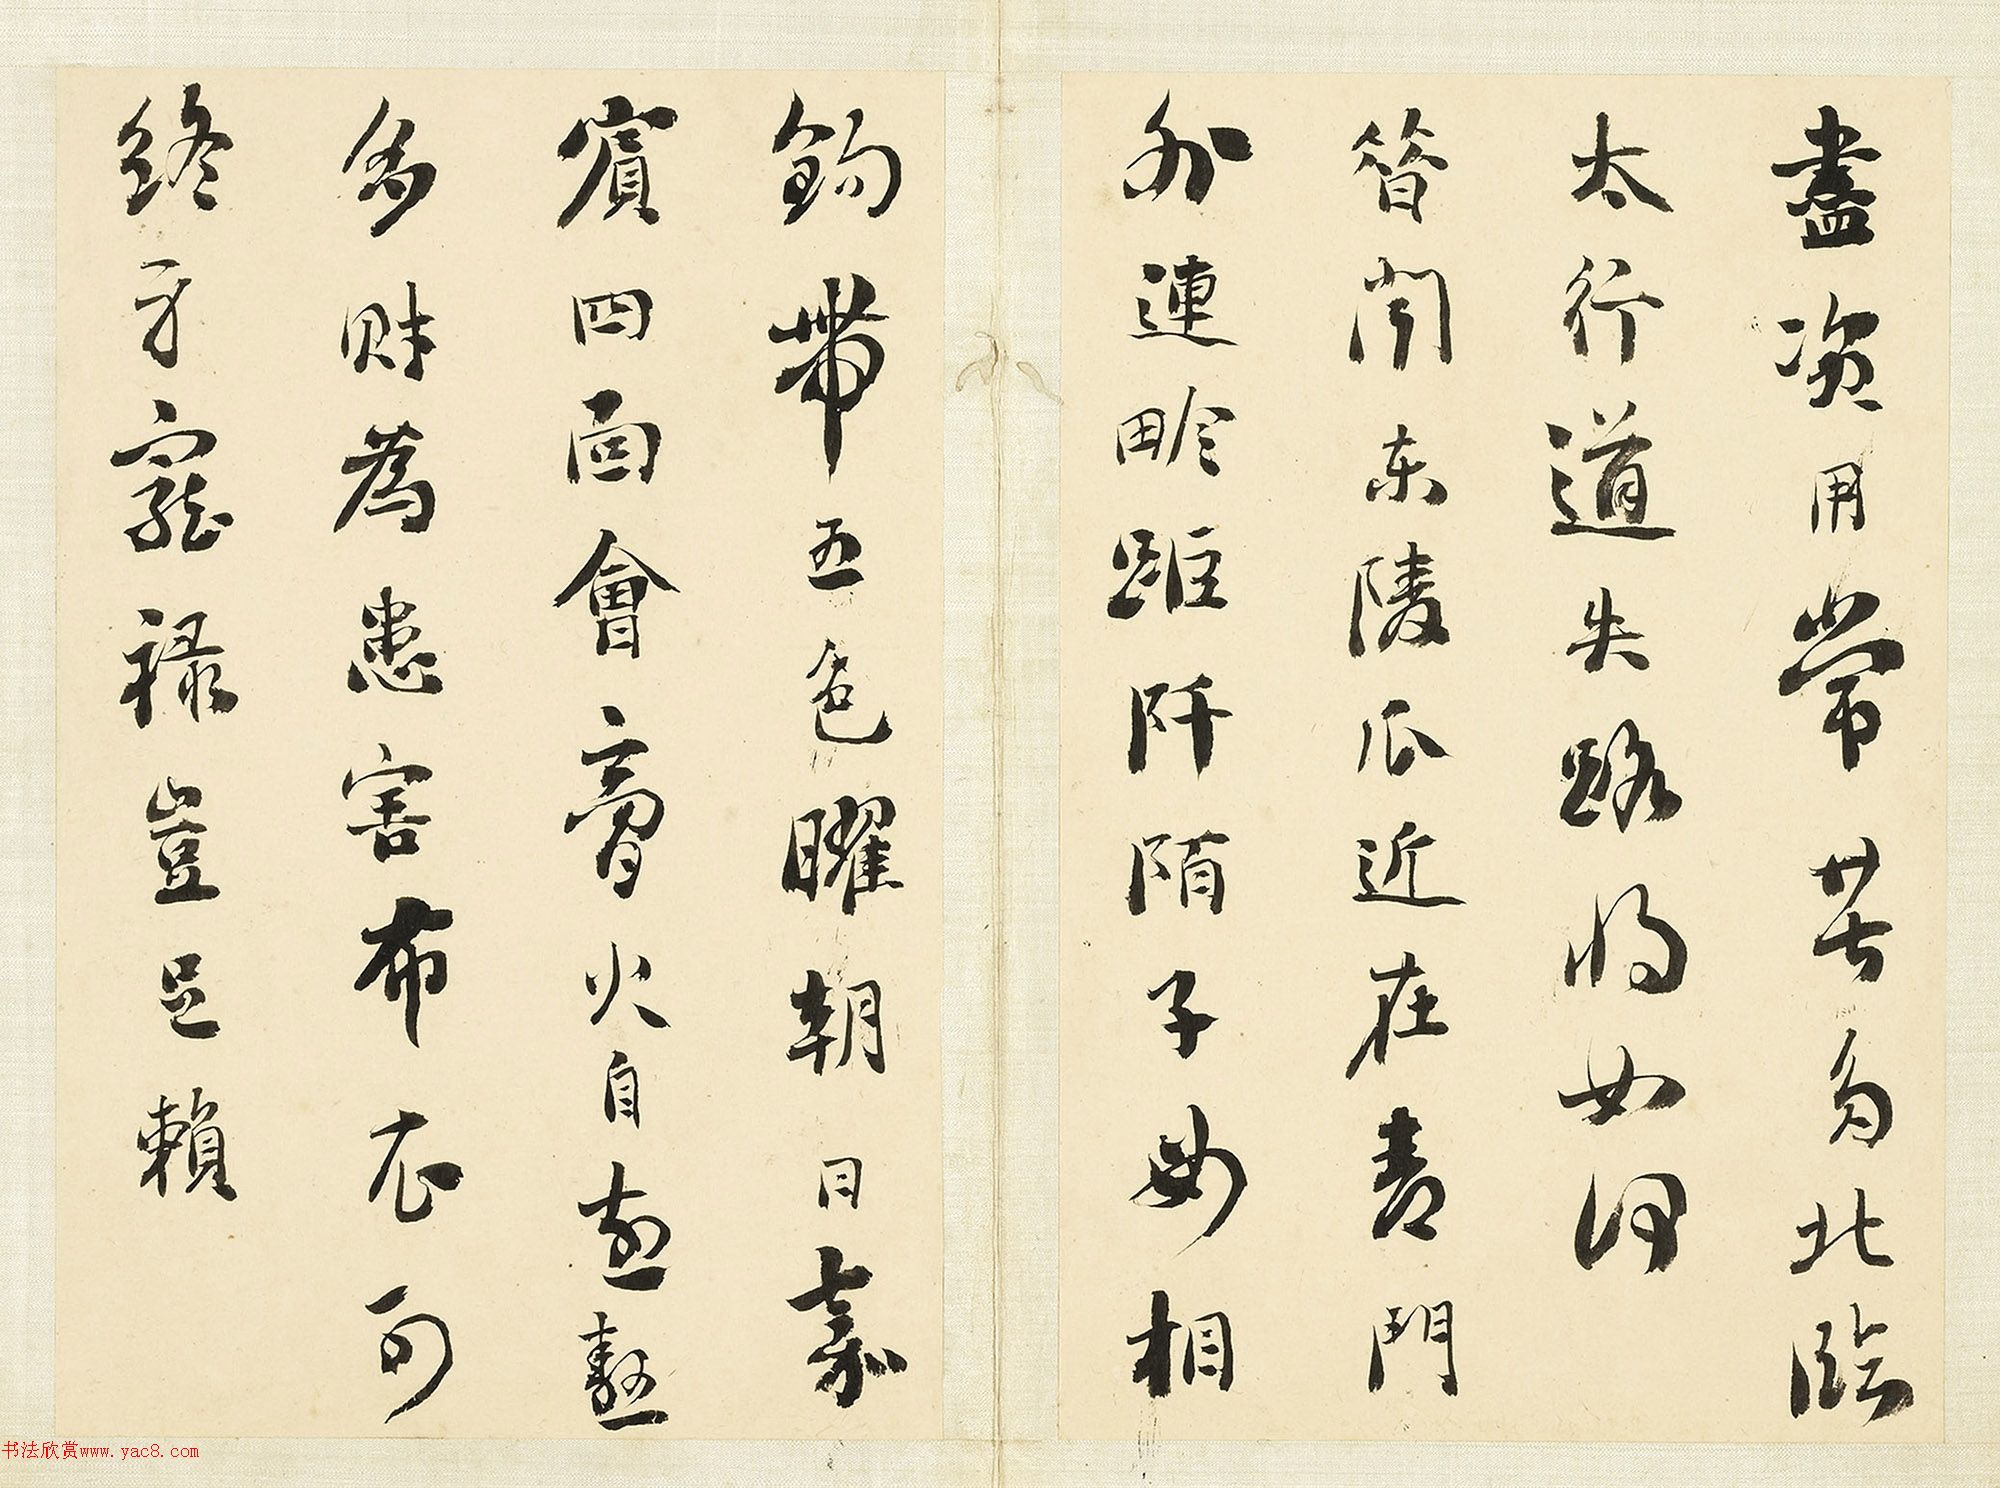 盡資用常苦多北臨
太行道失路將如何
昔聞東陵瓜近在青門
外連畛距阡陌子母相
鉤帶五色曜朝日嘉
賓四面會膏火自煎熬
多財為患害布衣可
終身寵祿豈足賴
书法欣赏www.yac8.com